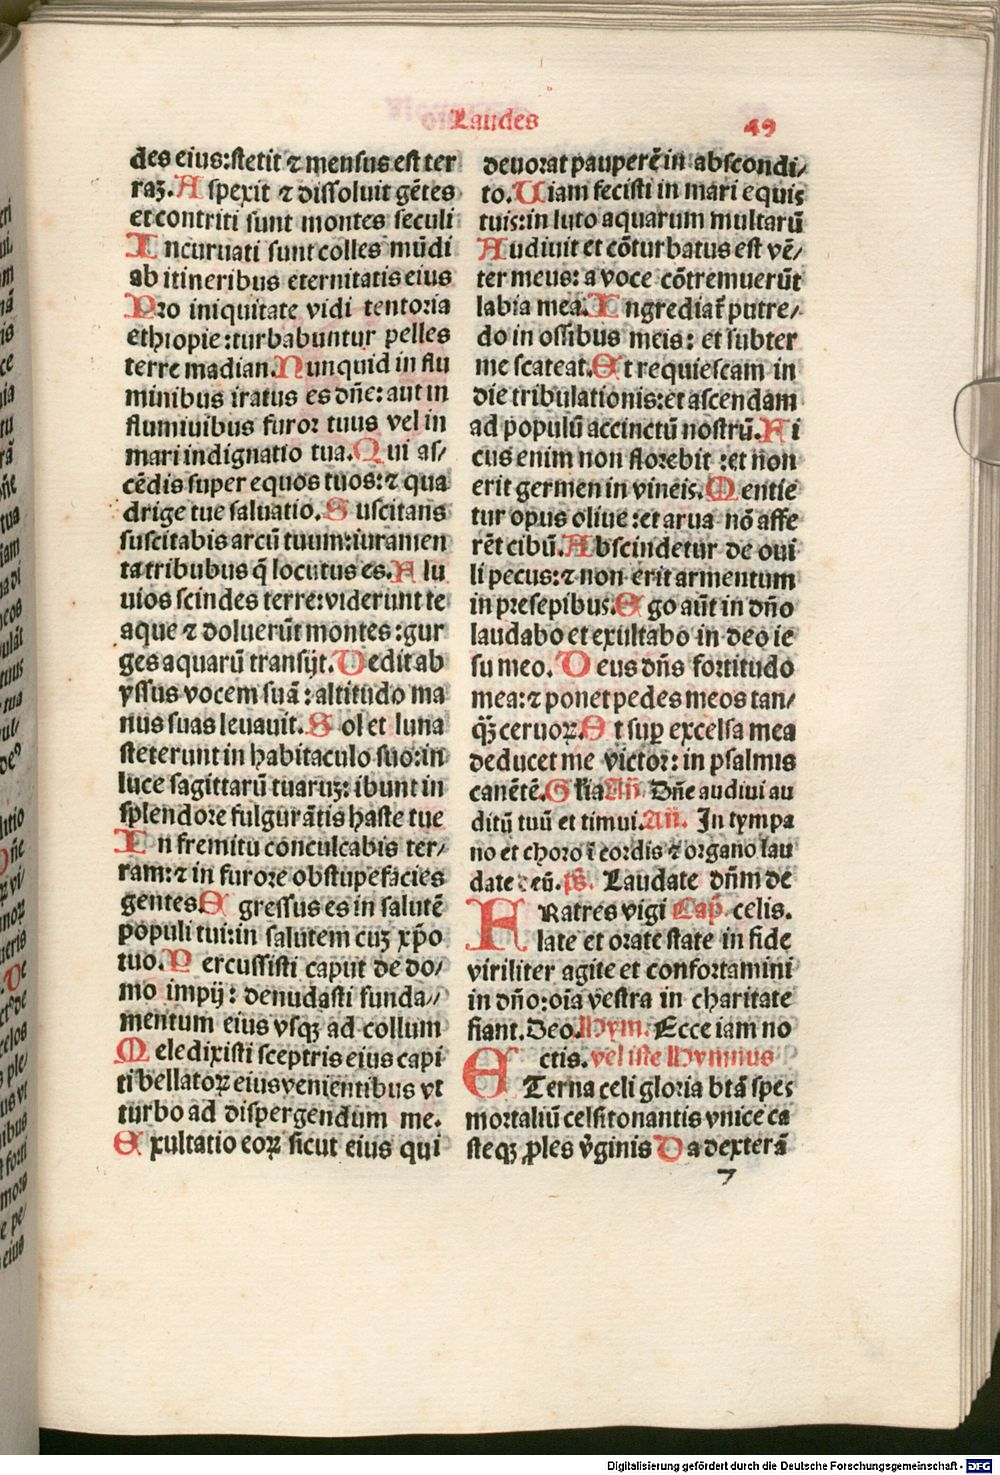 Laudes
49
des eius:stetit ⁊ mensus est ter
raꝫ. Aspexit ⁊ dissoluit gētes
et contriti sunt montes seculi
Incuruati sunt colles mūdi
ab itineribus eternitatis eius
Pro iniquitate vidi tentoria
ethiopie:turbabuntur pelles
terre madian. Nunquid in flu
minibus iratus es dn̄e: aut in
flumiuibus furor tuus vel in
mari indignatio tua. Qui as⸗
cēdis super equos tuos:⁊ qua
drige tue saluatio. Suscitans
suscitabis arcū tuum:iuramen
ta tribubus q̄ locutus es. Flu
uios scindes terre:viderunt te
aque ⁊ doluerūt montes:gur
ges aquarū transijt. Dedit ab
yssus vocem suā:altitudo ma
nus suas leuauit. Sol et luna
steterunt in habitaculo suo:in
luce sagittarū tuaruꝫ: ibunt in
splendore fulgurātis haste tue
In fremitu conculcabis ter⸗
ram:⁊ in furore obstupefacies
gentes. Egressus es in salutē
populi tui:in salutem cuꝫ xp̄o
tuo. Percussisti caput de do⸗
mo impij: denudasti funda⸗
mentum eius vsqꝫ ad collum
Meledixisti sceptris eius capi
ti bellatoꝝ eius venientibus vt
turbo ad dispergendum me.
Exultatio eoꝝ sicut eius qui
deuorat pauperē in abscondi⸗
to. Uiam fecisti in mari equis
tuis:in luto aquarum multarū
Audiuit et cōturbatus est vē⸗
ter meus: a voce cōtremuerūt
labia mea. Ingrediat̄ putre⸗
do in ossibus meis: et subter
me scateat. Et requiescam in
die tribulationis:et ascendam
ad populū accinctū nostrū. Fi
cus enim non florebit :et non
erit germen in vineis. Mentie
tur opus oliue:et arua nō affe
rēt cibū. Abscindetur de oui
li pecus:⁊ non erit armentum
in presepibus. Ego aūt in dn̄o
laudabo et exultabo in deo ie
su meo. Deus dn̄s fortitudo
mea:⁊ ponet pedes meos tan⸗
qꝫ ceruoꝝ. Et suꝑ excelsa mea
deducet me victor: in psalmis
canētē. Gl̄ia Añ. Dn̄e audiui au
ditū tuū et timui. Añ. In tympa
no et choro ī cordis ⁊ organo lau
date deū. ps̄. Laudate dn̄m de
FRatres vigi Cap̄. celis.
late et orate state in fide
viriliter agite et confortamini
in dn̄o:oīa vestra in charitate
fiant. Deo. Hym. Ecce iam no
ctis. vel iste Hymnus
ETerna celi gloria btā spes
mortaliū celsitonantis vnice ca
steqꝫ ꝓles v̄ginis Da dexterā
7
Digitalisierung gefördert durch die Deutsche Forschungsgemeinschaft - DFG